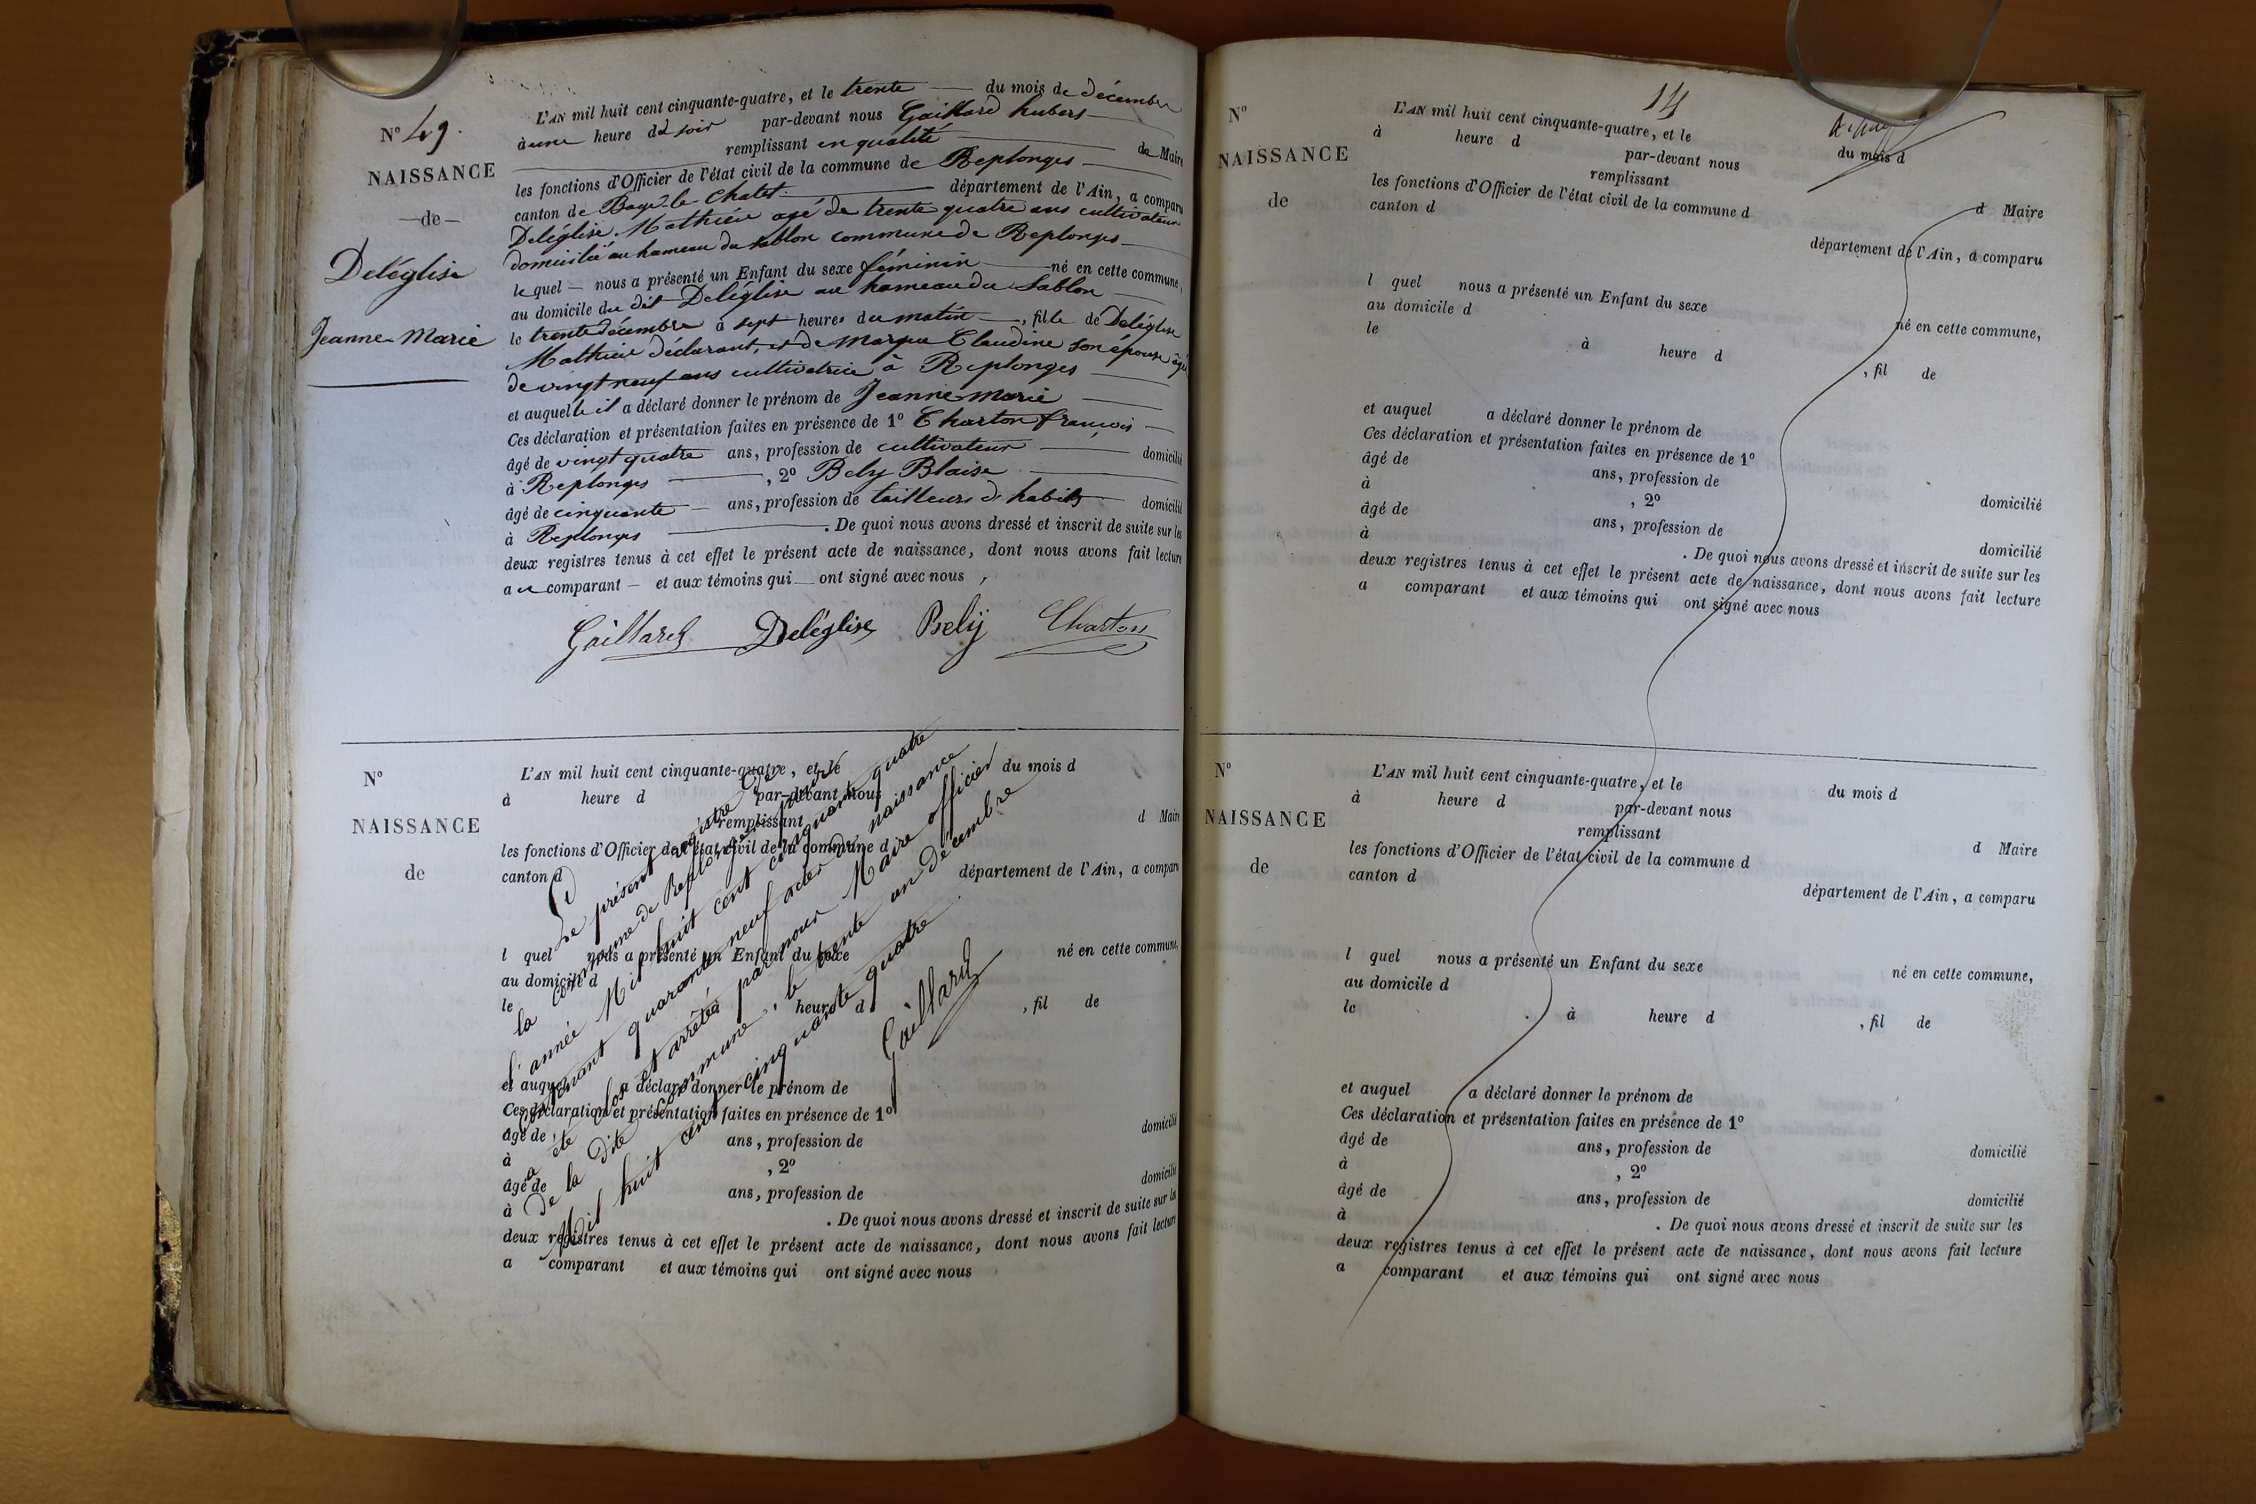 N° 49.
NAISSANCE
de
Deléglise
Jeanne-Marie
L'AN mil huit cent cinquante-quatre, et le trente du mois de décembre
à une heure du soir par-devant nous Gaillard hubert
remplissant en qualité de Maire
les fonctions d'Officier de l'état civil de la commune de Replonges
canton de Bagé-le-Chatel département de l'Ain, a comparu
Deléglise Mathieu agé de trente quatre ans cultivateur
domicilié au hameau du sablon commune de Replonges
le quel nous a présenté un Enfant du sexe féminin né en cette commune,
au domicile du dit Deléglise au hameau du Sablon
le trente décembre à sept heures du matin, fille de Deléglise
Mathieu déclarant, et de Claudine son épouse âgée
de vingt neuf ans cultivatrice à Replonges
et auquelle il a déclaré donner le prénom de Jeanne-marie
Ces déclaration et présentation faites en présence de 1° Charton françois
âgé de vingt quatre ans, profession de cultivateur domicilié
à Replonges , 2° Bely Blaise
âgé de cinquante ans, profession de tailleurs d'habits domicilié
à Replonges . De quoi nous avons dressé et inscrit de suite sur les
deux registres tenus à cet effet le présent acte de naissance, dont nous avons fait lecture
au comparant et aux témoins qui ont signé avec nous,
Gaillard Deléglise Bely Charton
N°
NAISSANCE
de
L'AN mil huit cent cinquante-quatre, et le du mois d
à heure d par-devant nous
remplissant d Maire
les fonctions d'Officier de l'état civil de la commune d
canton d département de l'Ain, a comparu
l quel nous a présenté un Enfant du sexe né en cette commune,
au domicile d
le heure d , fil de
et auquel a déclaré donner le prénom de
Ces déclaration et présentation faites en présence de 1°
âgé de ans, profession de domicilié
à , 2°
âgé de ans, profession de domicilié
à . De quoi nous avons dressé et inscrit de suite sur les
deux registres tenus à cet effet le présent acte de naissance, dont nous avons fait lecture
a comparant et aux témoins qui ont signé avec nous
Le présent registre de
la commune de Replonges pour
l'année Mil huit cent cinquante quatre
contenant quarante neuf actes de naissance
a été clos et arrêté par nous Maire officier
de la dite commune, le trente un décembre
Mil huit cent cinquante quatre
Gaillard
14
N°
NAISSANCE
de
L'AN mil huit cent cinquante-quatre, et le du mois d
à heure d par-devant nous
remplissant d Maire
les fonctions d'Officier de l'état civil de la commune d
canton d département de l'Ain, a comparu
l quel nous a présenté un Enfant du sexe né en cette commune,
au domicile d
le à heure d , fil de
et auquel a déclaré donner le prénom de
Ces déclaration et présentation faites en présence de 1°
âgé de ans, profession de domicilié
à , 2°
âgé de ans, profession de domicilié
à . De quoi nous avons dressé et inscrit de suite sur les
deux registres tenus à cet effet le présent acte de naissance, dont nous avons fait lecture
a comparant et aux témoins qui ont signé avec nous
N°
NAISSANCE
de
L'AN mil huit cent cinquante-quatre, et le du mois d
à heure d par-devant nous
remplissant d Maire
les fonctions d'Officier de l'état civil de la commune d
canton d département de l'Ain, a comparu
l quel nous a présenté un Enfant du sexe né en cette commune,
au domicile d
le à heure d , fil de
et auquel a déclaré donner le prénom de
Ces déclaration et présentation faites en présence de 1°
âgé de ans, profession de domicilié
à , 2°
âgé de ans, profession de domicilié
à . De quoi nous avons dressé et inscrit de suite sur les
deux registres tenus à cet effet le présent acte de naissance, dont nous avons fait lecture
a comparant et aux témoins qui ont signé avec nous